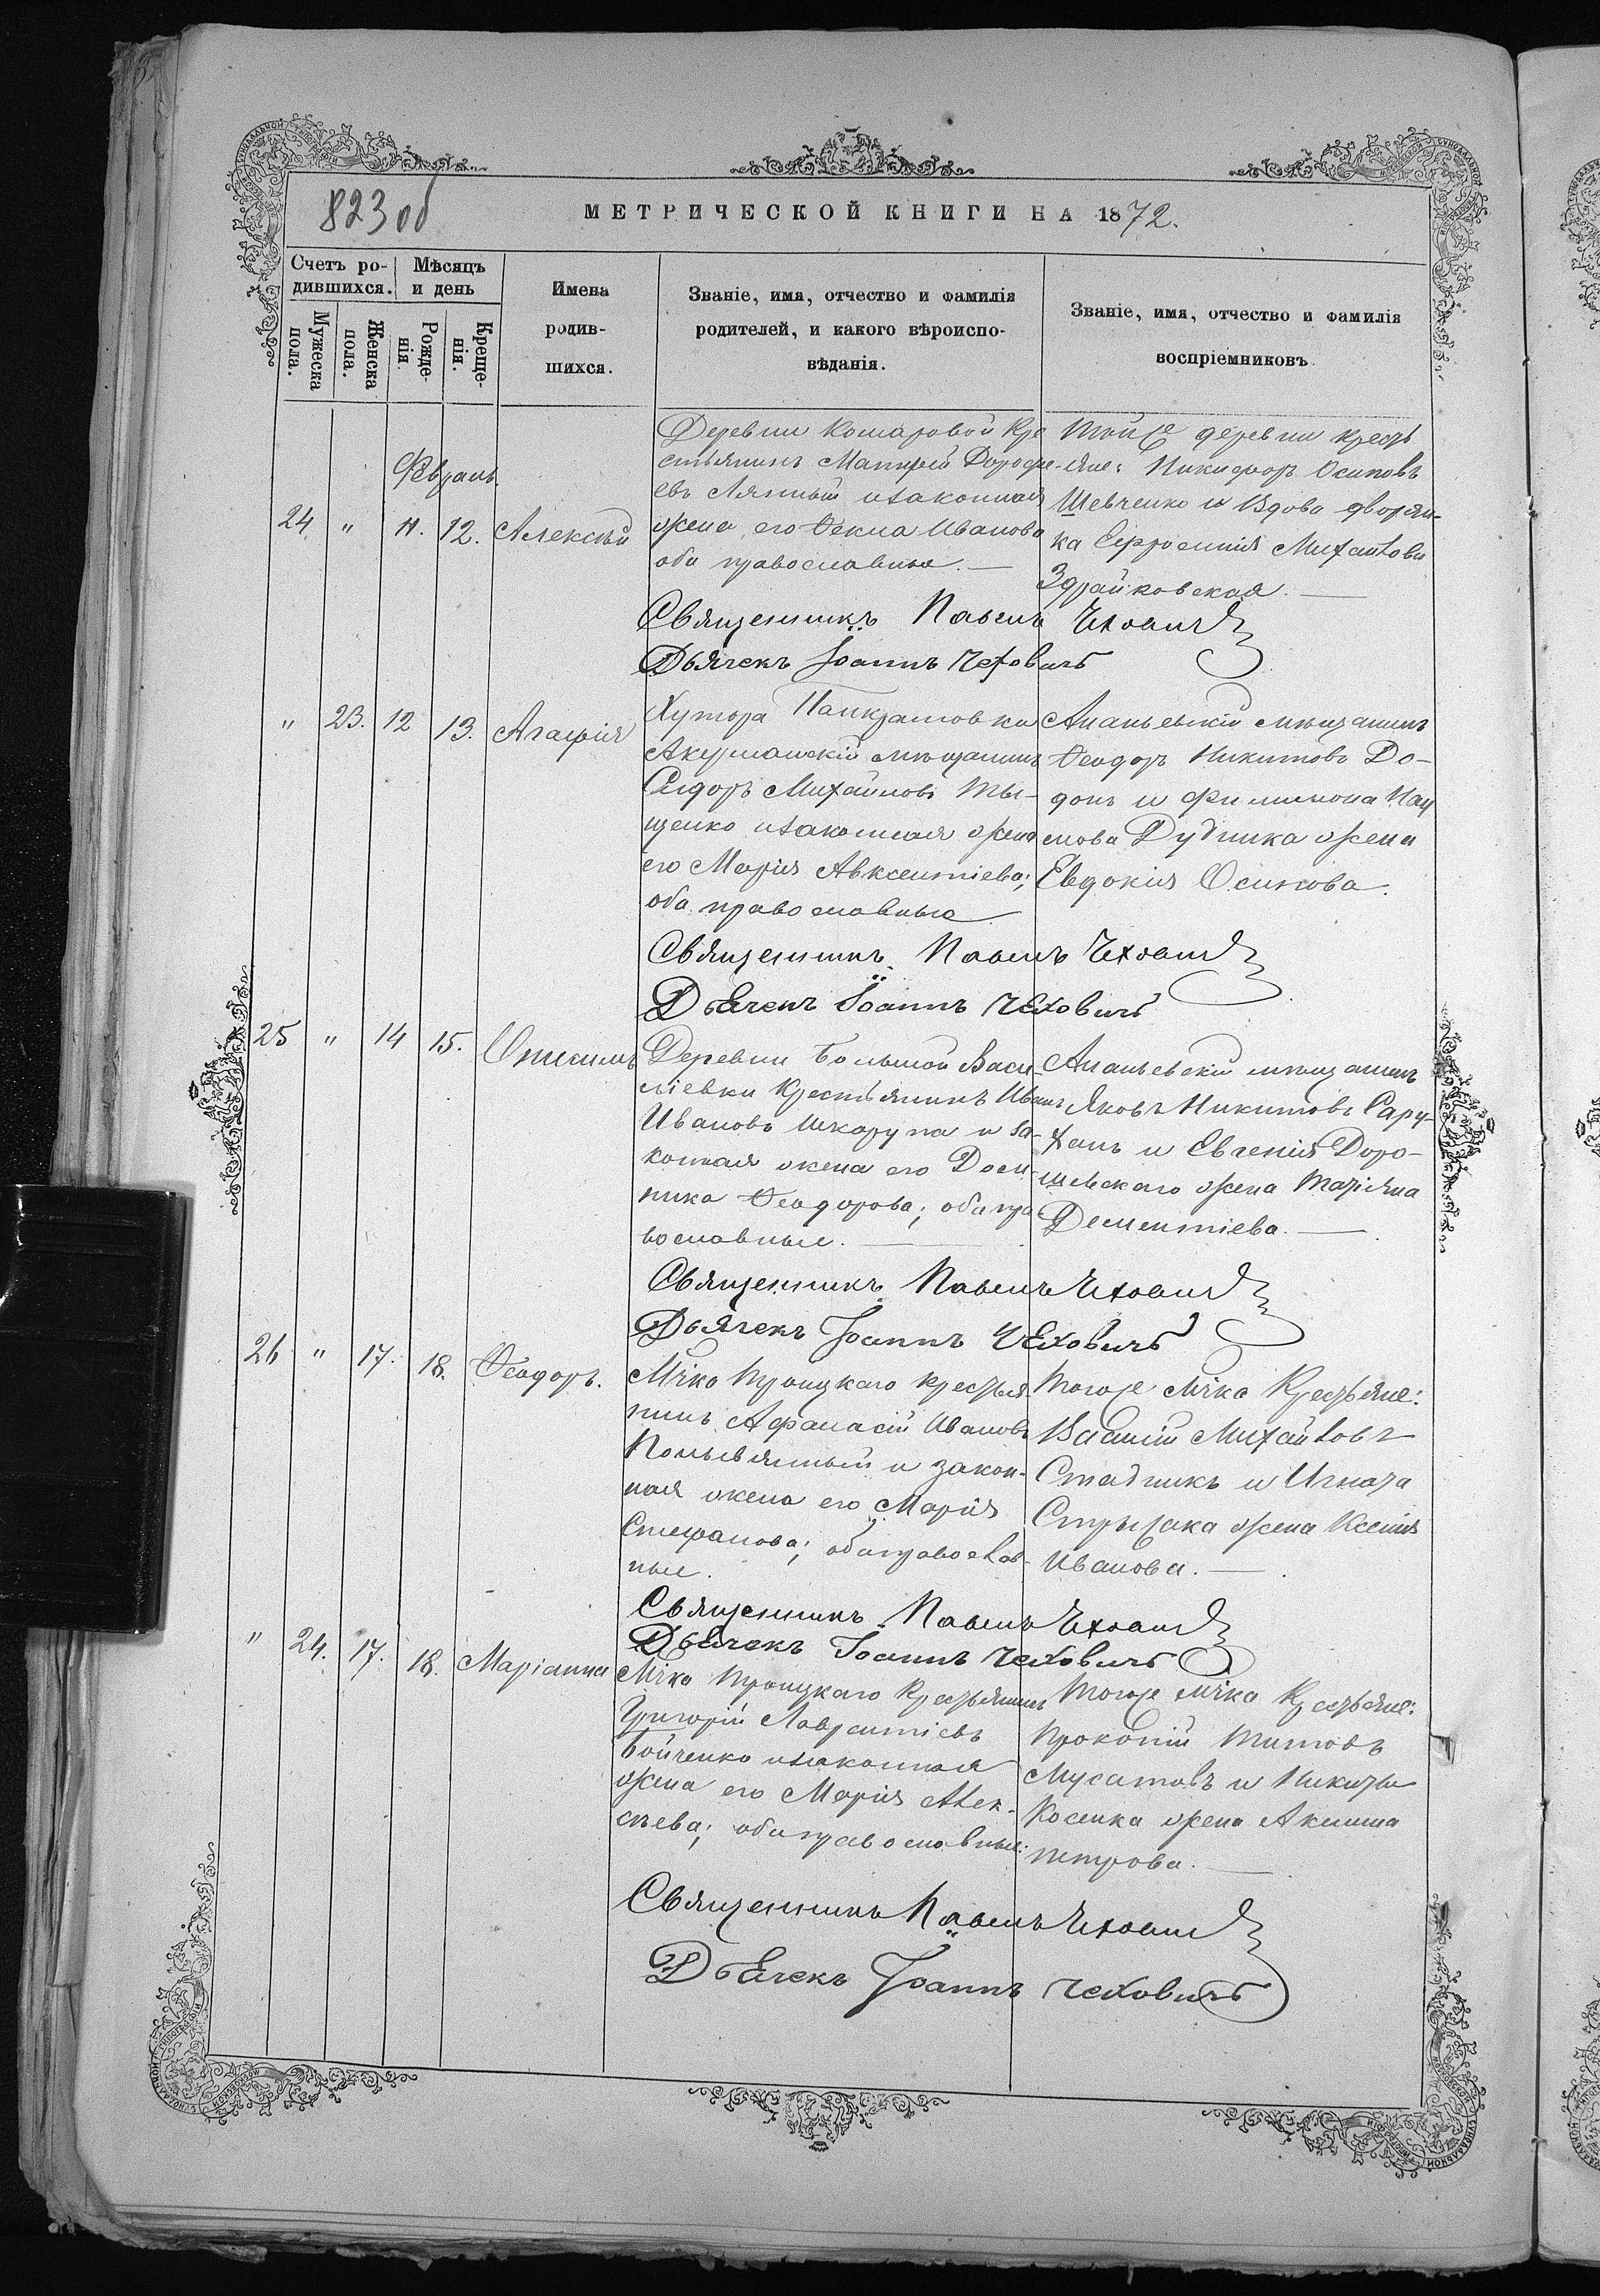 823 об
МЕТРИЧЕСКОЙ КНИГИ НА 1872.
Счетъ ро-
дившихся.
Мѣсяцъ
и день
Имена
родив-
шихся.
Званіе, имя, отчество и фамилія
родителей, и какого вѣроиспо-
вѣданія.
Званіе, имя, отчество и фамилія
воспріемниковъ
Мужеска
пола.
Женска
пола.
Рожде-
нія.
Креще-
нія.
Февраль.
24 " 11. 12. Алексѣй
Деревни Комаровой Кре
стьянинъ Матфей Дорофе-
евъ Лятный и законная
жена его Ѳекла Иванова
оба православные.
Той же деревни кресть
яне: Никифоръ Осиповъ
Шевченко и Вдова дворян-
ка Ефросинія Михайлова
Здрайковская.
Священникъ Павелъ Чеховичъ
Дьячекъ Іоаннъ Чеховичъ
" 23. 12 13. Агафія
Хутора Панкратовки
Акерманскій мѣщанинъ
Сидоръ Михайловъ Ты-
щенко и законная жена
его Марія Авксентіева;
оба православные
Ананьевскій мѣщанинъ
Ѳеодоръ Никитовъ До-
донъ и Филимона Нау
мова Дубчика жена
Евдокія Осипова.
Священникъ Павелъ Чеховичъ
Дьячекъ Іоаннъ Чеховичъ
25 " 14 15. Онисимъ
Деревни Большой Васи-
ліевки Крестьянинъ Иванъ
Ивановъ Шкарупа и за-
конная жена его Дом-
ника Ѳеодорова; оба пра-
вославные.
Ананьевскій мѣщанинъ
Яковъ Никитовъ Сару-
ханъ и Евгенія Доро-
шевскаго жена Маріяна
Дементіева.
Священникъ Павелъ Чеховичъ
Дьячекъ Іоаннъ Чеховичъ
26 " 17. 18. Ѳеодоръ.
Мѣчка Троицкаго крестья
нинъ Афанасій Ивановъ
и закон-
ная жена его Марія
Стефанова; оба православ-
ные.
Тогоже мѣчка Крестьяне:
Василій Михайловъ
Стадникъ и Игната
жена Ксенія
Иванова.
Священникъ Павелъ Чеховичъ
Дьячекъ Іоаннъ Чеховичъ
" 24. 17. 18. Маріанна
Мѣчка Троицкаго Крестьянинъ
Григорій Лаврентіевъ
Бойченко и законная
жена его Марія Алек-
сѣева; оба православные:
Тогоже мѣчка Крестьяне:
Прокопій Титовъ
Мусатовъ и Никиты
Косенка жена Акилина
Петрова.
Священникъ Павелъ Чеховичъ
Дьячекъ Іоаннъ Чеховичъ